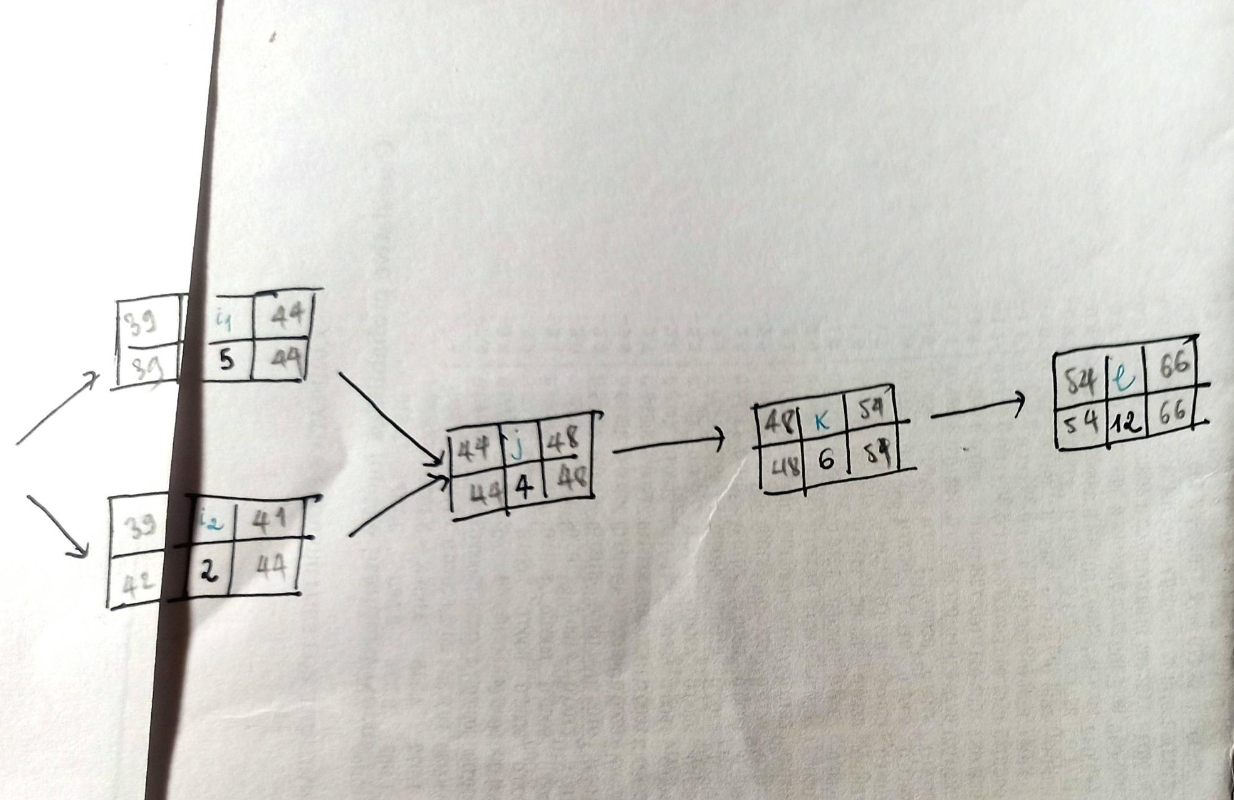 39 i1 44
39 5 44
39 i2 41
42 2 44
44 j 48
44 4 48
48 K 54
48 6 54
54 l 66
54 12 66